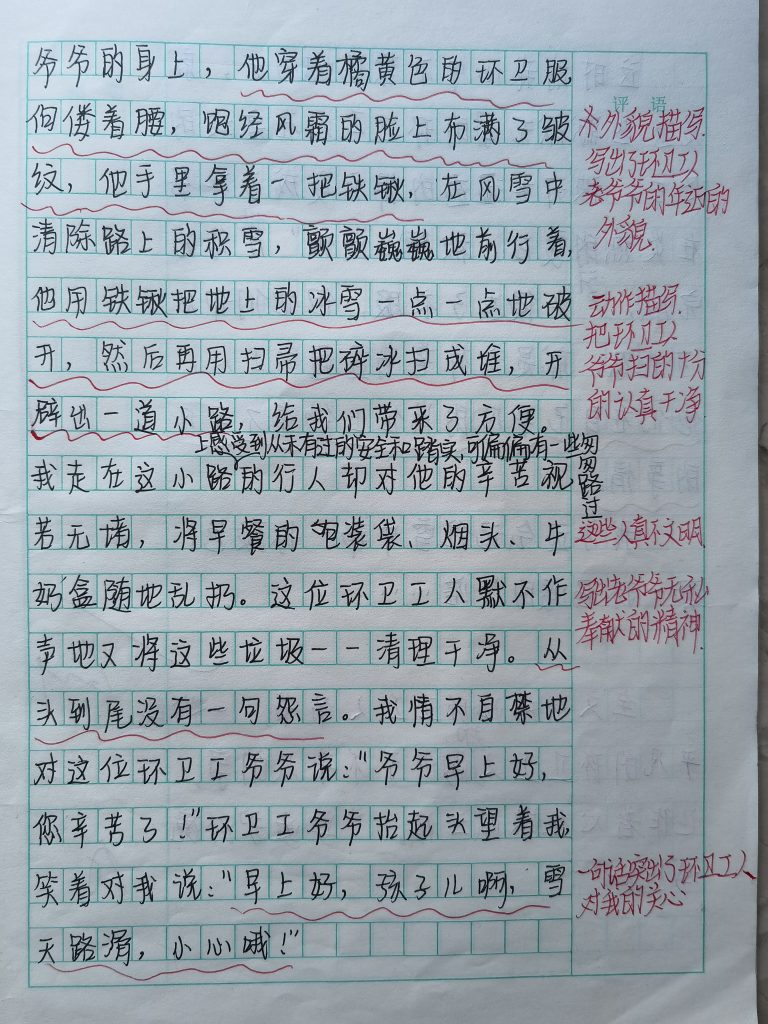 爷爷的身上，他穿着橘黄色的环卫服
佝偻着腰，饱经风霜的脸上布满了皱
纹，他手里拿着一把铁锹，在风雪中
清除路上的积雪，颤颤巍巍地前行着，
他用铁锹把地上的冰雪一点一点地破
开，然后再用扫帚把碎冰扫成堆，开
辟出一道小路，给我们带来了方便。
上感受到从未有过的安全和踏实，可偏偏有一些匆匆路过
我走在这小路的行人却对他的辛苦视
若无堵，将早餐的包装袋、烟头、牛
奶盒随地乱扔。这位环卫工人默不作
声地又将这些垃圾一一清理干净。从
头到尾没有一句怨言。我情不自禁地
对这位环卫工爷爷说："爷爷早上好，
您辛苦了！"环卫工爷爷抬起头望着我，
笑着对我说："早上好，孩子儿啊，雪
天路滑，小心哦！"
评语
外貌描写
写出了环卫工
老爷爷的年迈的
外貌
动作描写
把环卫工
爷爷扫的十分
的认真干净
这些人真不文明
写出老爷爷无私
奉献的精神
一句话突出了环卫工人
对我的关心